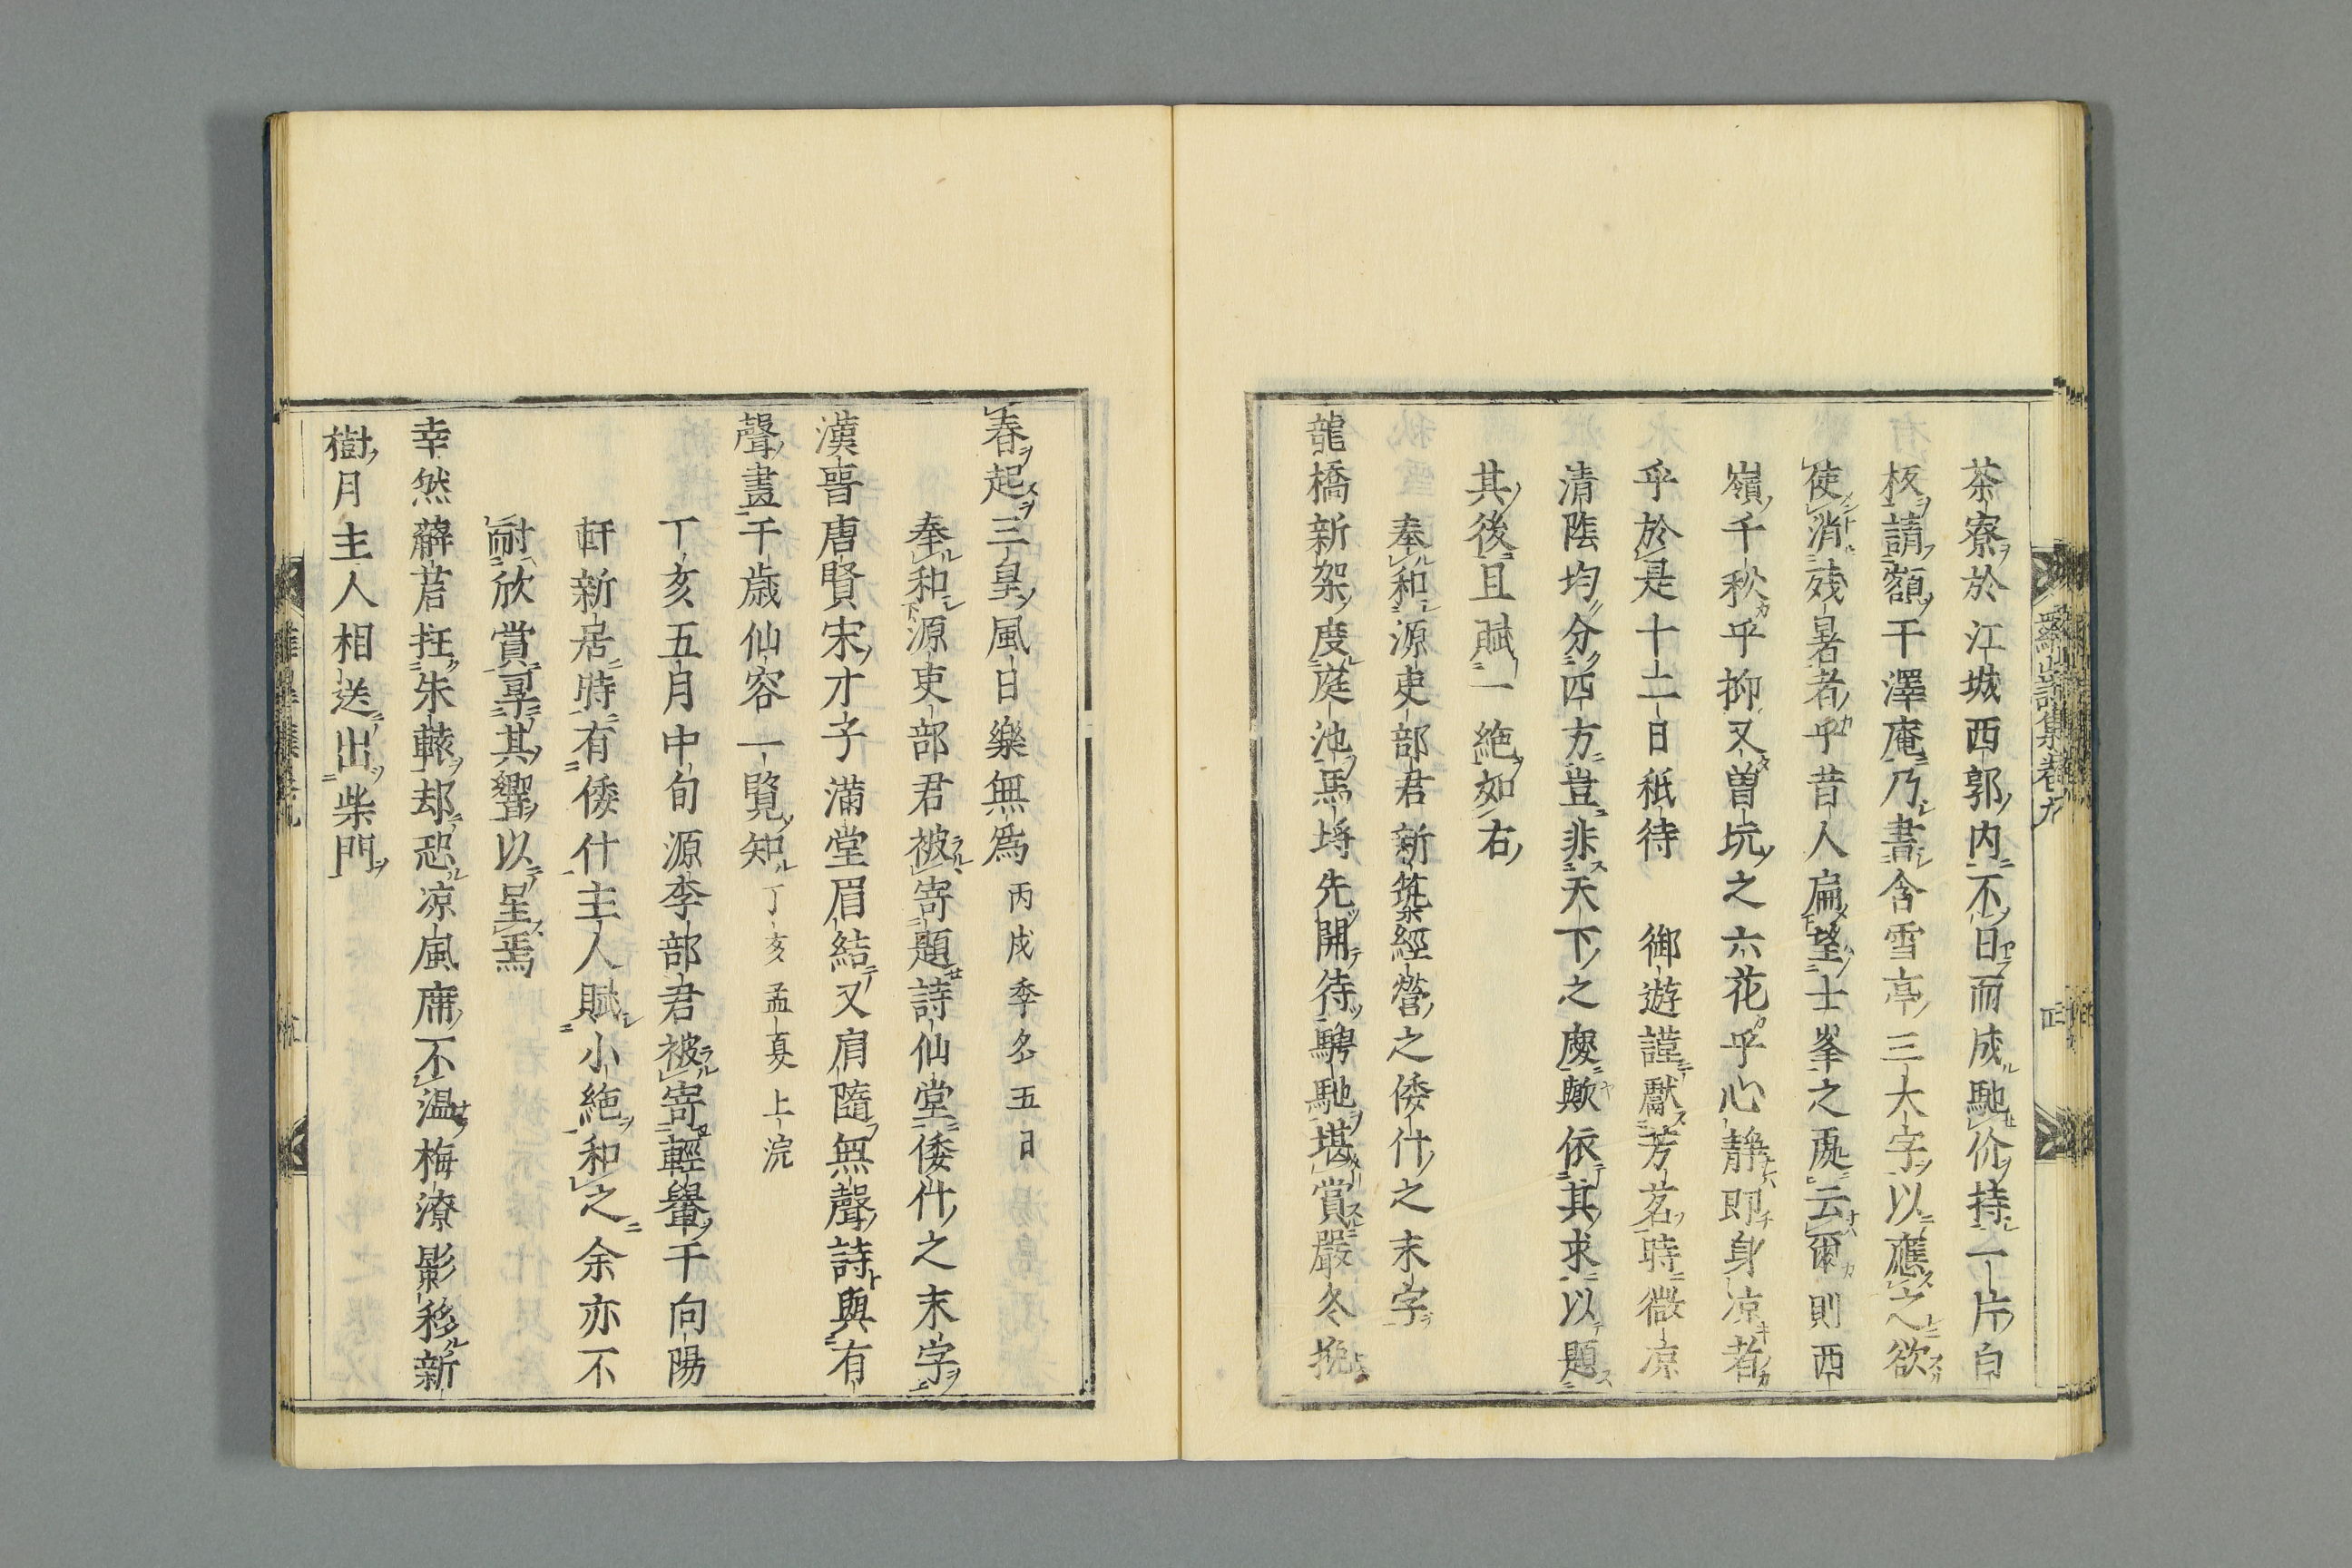 茶寮於江城西郭内不日而成馳价持一片白
板請額于澤庵乃書含雪亭三大字以應之欲
使消殘暑者乎昔人扁望士峯之處云爾則西
嶺千秋乎抑又曽玩之六花乎心静即身凉者
乎於是十二日秖待 御遊謹獻芳茗時微凉
清陰均分四方豈非天下之慶歟依其求以題
其後且賦一絶如右
奉和源吏部君新築經營之倭什之末字
龍橋新架度庭池馬埒先開待騁馳堪賞嚴冬挽
春起三皇風日樂無爲 丙戌季冬五日
奉和源吏部君被寄題詩仙堂倭什之末字
漢晋唐賢宋才子滿堂眉結又肩隨無聲詩與有
聲畫千歳仙容一覧知 丁亥孟夏上浣
丁亥五月中旬源李部君被寄輕轝于向陽
軒新居時有倭什主人賦小絶和之余亦不
耐欣賞尋其響以呈焉
幸然薜荔抂朱轅却恐凉風席不温梅潦影移新
樹月主人相送出柴門